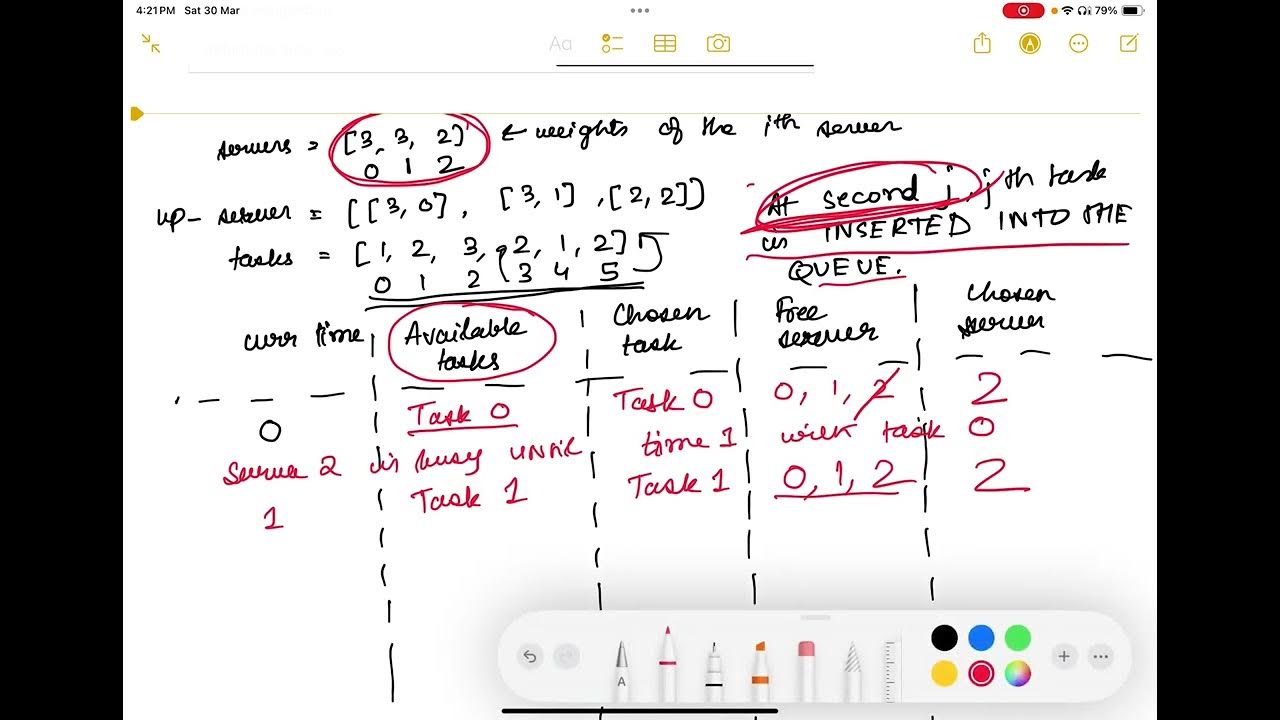 4:21 PM Sat 30 Mar
79%
Aa
servers = [3, 3, 2] ← weights of the ith server
0 1 2
up-server = [[3, 0], [3, 1], [2, 2]]
At second j, jth task
is INSERTED INTO THE
QUEUE.
tasks = [1, 2, 3, 2, 1, 2]
0 1 2 3 4 5
curr time
Available
tasks
Chosen
task
Free
server
Chosen
server
0
Task 0
Task 0
0, 1, 2
2
Server 2 is busy until time 1 with task 0
1
Task 1
Task 1
0, 1, 2
2
A